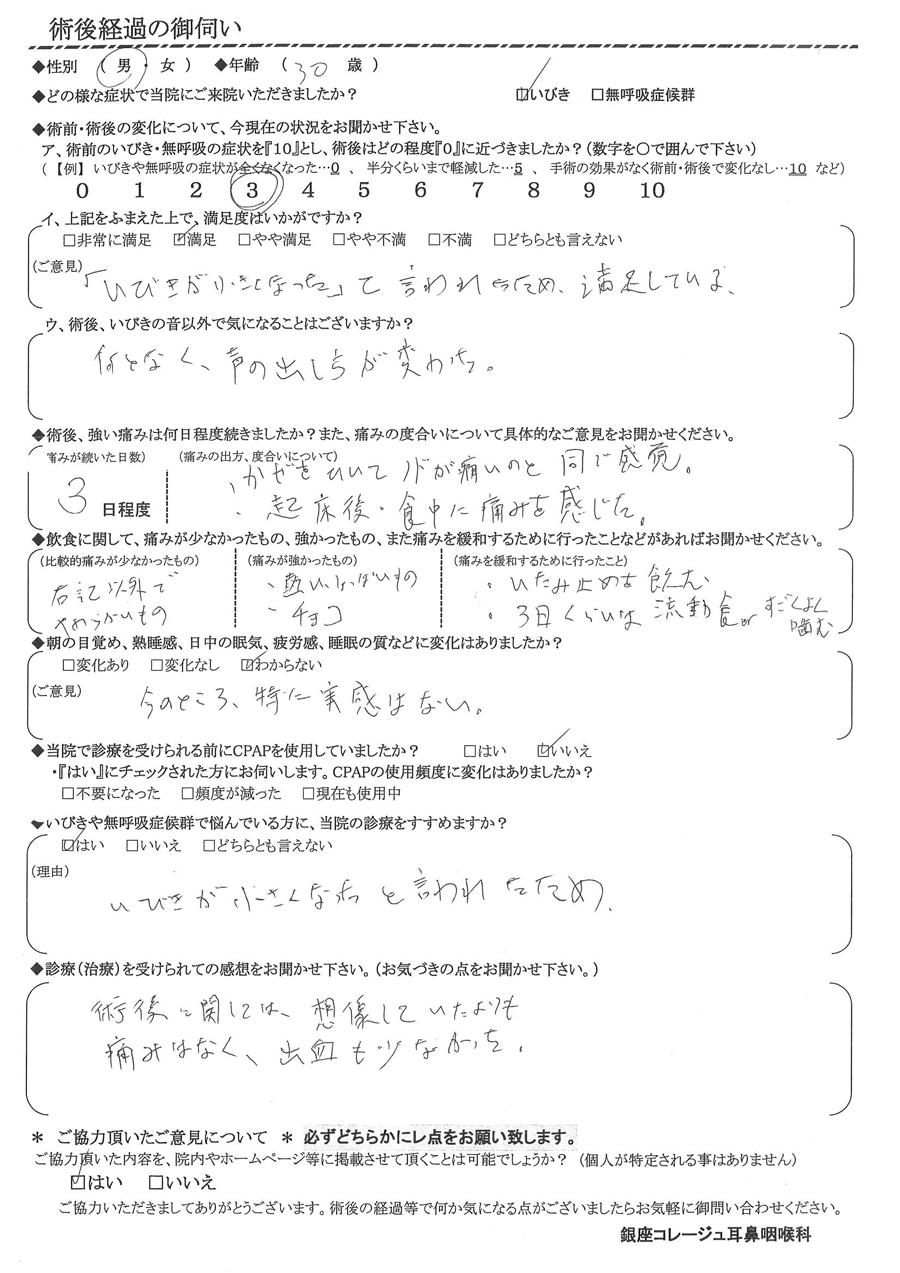 術後経過の御伺い
◆性別 （ 男 ・ 女 ） ◆年齢 （ 30 歳 ）
◆どの様な症状で当院にご来院いただきましたか？ ☑いびき □無呼吸症候群
◆術前・術後の変化について、今現在の状況をお聞かせ下さい。
ア、術前のいびき・無呼吸の症状を『10』とし、術後はどの程度『0』に近づきましたか？（数字を〇で囲んで下さい）
（【例】 いびきや無呼吸の症状が全くなくなった…0 、 半分くらいまで軽減した…5 、 手術の効果がなく術前・術後で変化なし…10 など）
0 1 2 3 4 5 6 7 8 9 10
イ、上記をふまえた上で、満足度はいかがですか？
□非常に満足 ☑満足 □やや満足 □やや不満 □不満 □どちらとも言えない
（ご意見）
「いびきが小さくなった」て言われたため、満足している。
ウ、術後、いびきの音以外で気になることはございますか？
何となく、声の出し方が変わった。
◆術後、強い痛みは何日程度続きましたか？また、痛みの度合いについて具体的なご意見をお聞かせください。
痛みが続いた日数） （痛みの出方、度合いについて）
3 日程度
・かぜをひいてノドが痛いのと同じ感覚。
・起床後・食中に痛みを感じた。
◆飲食に関して、痛みが少なかったもの、強かったもの、また痛みを緩和するために行ったことなどがあればお聞かせください。
（比較的痛みが少なかったもの） （痛みが強かったもの） （痛みを緩和するために行ったこと）
右記以外で
やわらかいもの
・熱い、しょっぱいもの
・チョコ
・いたみ止めを飲む
・3日くらいは流動食orすごくよく
噛む
◆朝の目覚め、熟睡感、日中の眠気、疲労感、睡眠の質などに変化はありましたか？
□変化あり □変化なし ☑わからない
（ご意見）
今のところ、特に実感はない。
◆当院で診療を受けられる前にCPAPを使用していましたか？ □はい ☑いいえ
・『はい』にチェックされた方にお伺いします。CPAPの使用頻度に変化はありましたか？
□不要になった □頻度が減った □現在も使用中
◆いびきや無呼吸症候群で悩んでいる方に、当院の診療をすすめますか？
☑はい □いいえ □どちらとも言えない
（理由）
いびきが小さくなったと言われたため。
◆診療（治療）を受けられての感想をお聞かせ下さい。（お気づきの点をお聞かせ下さい。）
術後に関しては、想像していたよりも
痛みはなく、出血も少なかった。
＊ ご協力頂いたご意見について ＊ 必ずどちらかにレ点をお願い致します。
ご協力頂いた内容を、院内やホームページ等に掲載させて頂くことは可能でしょうか？ （個人が特定される事はありません）
☑はい □いいえ
ご協力いただきましてありがとうございます。術後の経過等で何か気になる点がございましたらお気軽に御問い合わせください。
銀座コレージュ耳鼻咽喉科